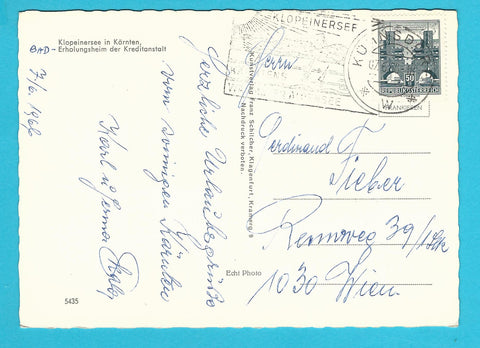 Klopeinersee in Kärnten,
BAD- Erholungsheim der Kreditanstalt
7/6. 1962
Herzliche Urlaubsgrüße
vom sonnigen Kärnten
Karl u.
Kunstverlag Franz Schilcher, Klagenfurt, Kranerg/8
Nachdruck verboten.
Echt Photo
5435
KLOPEINERSEE
50
REPUBLIK ÖSTERREICH
Herrn
Ferdinand
Sieber
Rennweg 39/
1030 Wien